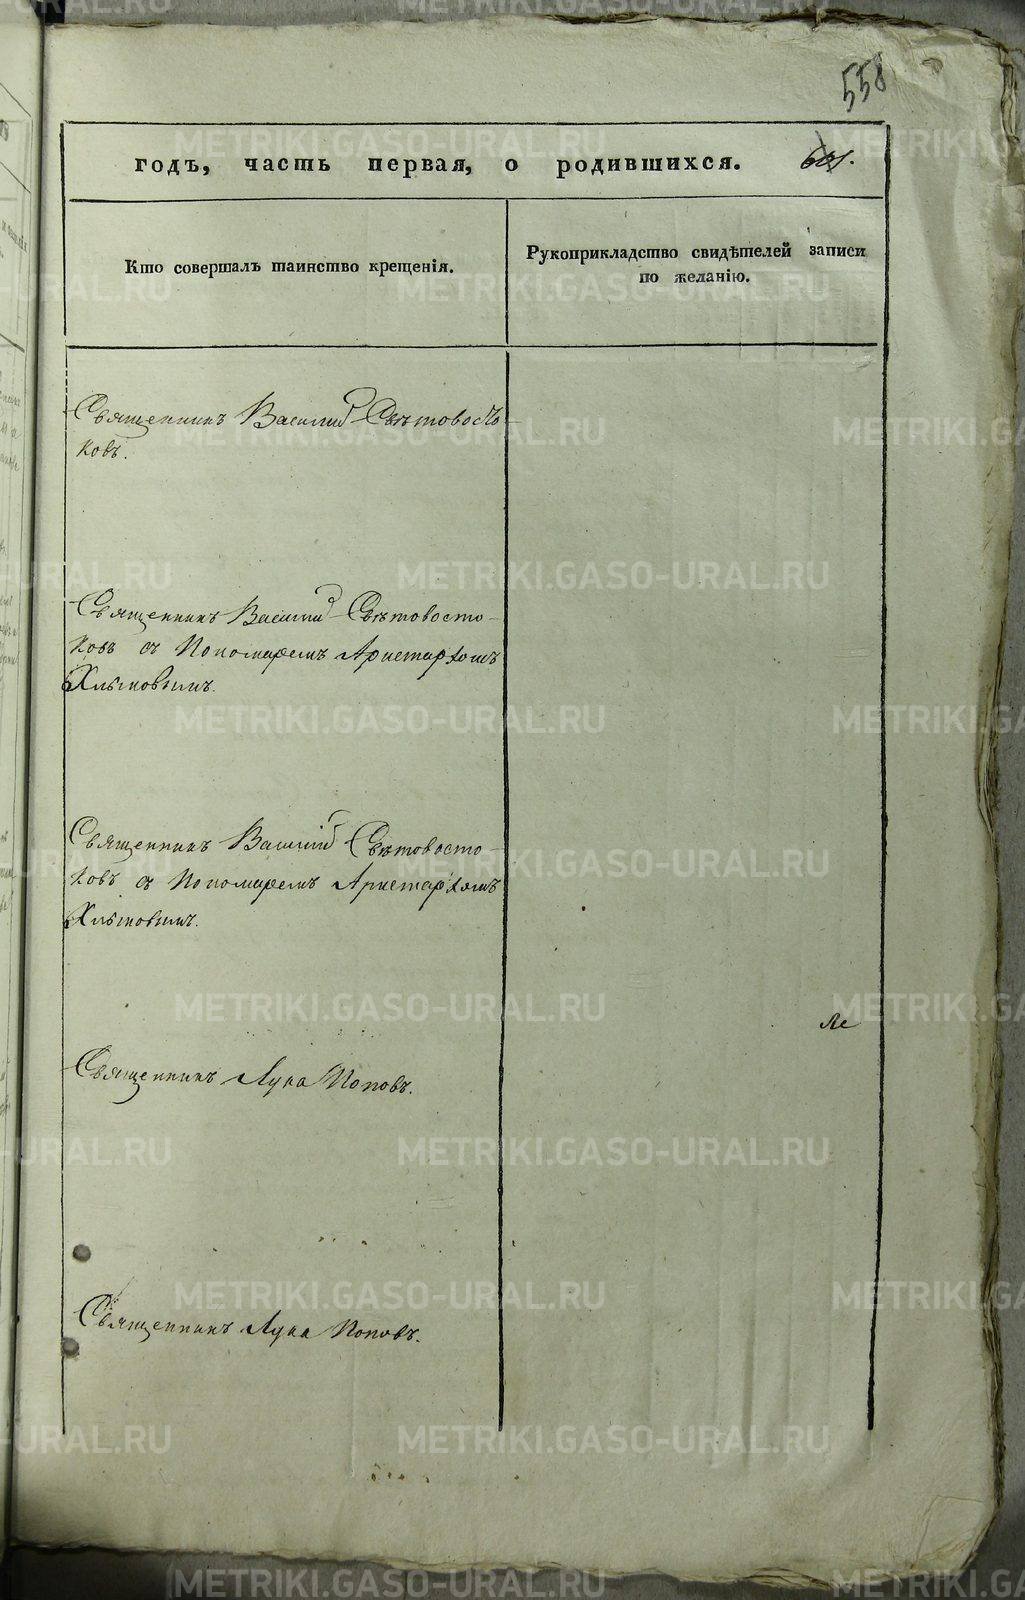 558
годъ, часть первая, о родившихся. 601.
Кто совершалъ таинство крещенія.
Рукоприкладство свидѣтелей записи
по желанію.
Священникъ Василий Свѣтовосто-
ковъ.
Священникъ Василий Свѣтовосто-
ковъ съ Пономаремъ Аристархомъ
Хлыновымъ.
Священникъ Василій Свѣтовосто-
ковъ съ Пономаремъ Аристархомъ
Хлыновымъ.
Ле
Священникъ Лука Поповъ.
Священникъ Лука Поповъ.
METRIKI.GASO-URAL.RU